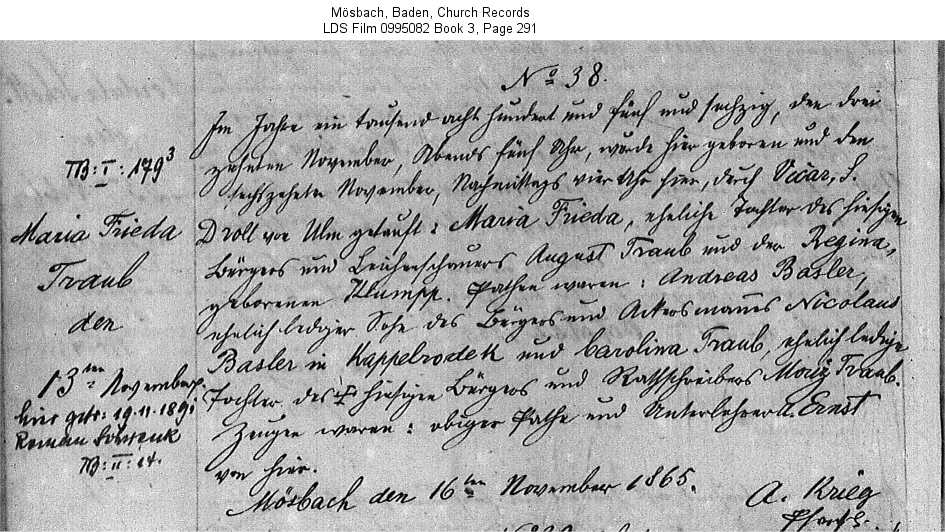 Mösbach, Baden, Church Records
LDS Film 0995082 Book 3, Page 291
No 38.
Im Jahre ein tausend acht hundert und fünf und sechzig, den drei
zehnten November, Abends fünf Uhr, wurde hier geboren und den
sechszehnten November, Nachmittags vier Uhr hier, durch Vicar, S.
Droll von Ulm getauft: Maria Frieda, eheliche Tochter des hiesigen
Bürgers und Leichenschauers August Traub und der Regina,
geborenen Klumpp. Pathen waren: Andreas Basler,
ehelich lediger Sohn des Bürgers und Ackersmanns Nicolaus
Basler in Kappelrodek und Carolina Traub, ehelich ledige
Tochter des † hiesigen Bürgers und Rathschreibers Moriz Traub.
Zeugen waren: obiger Pathe und Unterlehrer Ernst
von hier.
Mösbach den 16ten November 1865.
A. Krieg
TB: I: 179³
Maria Frieda
Traub
den
13ten November
hier getr: 19.11.1891
Roman
TB: II: 14.